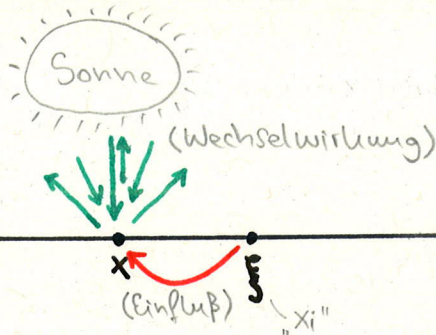 Sonne
(Wechselwirkung)
x ξ
(Einfluß)
„Xi"